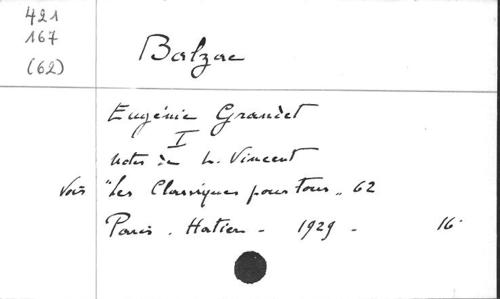 421
167
(62)
Balzac
Eugénie Grandet
I
Notes de L. Vincent
Voir "Les Classiques pour Tous" 62
Paris. Hatier - 1929 - 16°